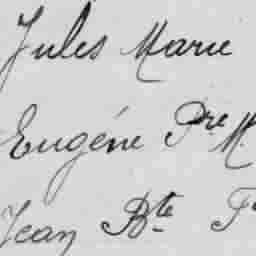 Jules Marie
Eugéne Pre M.
Jean Bte F